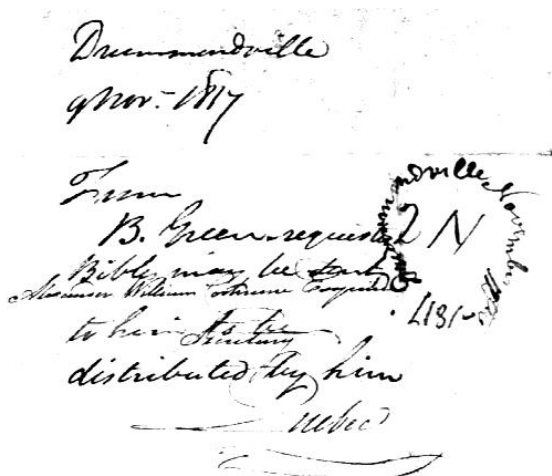 Drummondville
9 Nov. 1817
From
B. Green requests
Bibles may be sent
Alexander William Cochrane Esquire
to him to be
Secretary
distributed by him
Quebec
Drummondville November
1817.